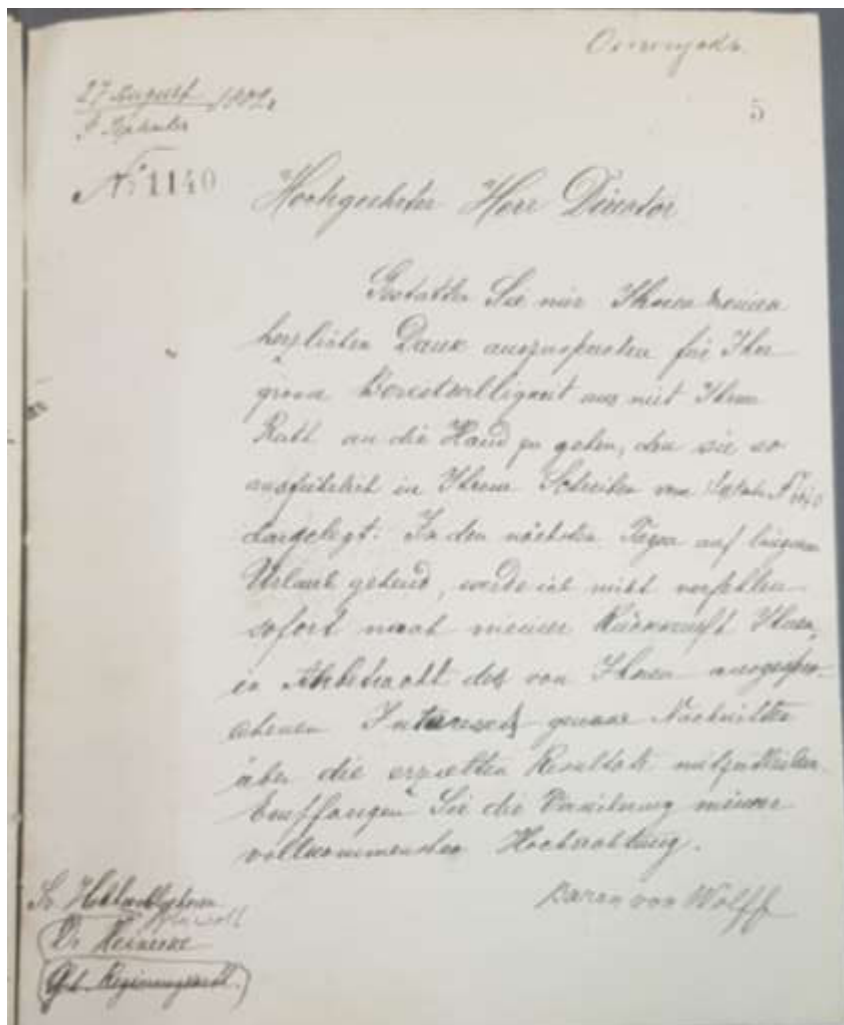 27 August 1902.
September
№ 1140
5
Hochgeehrter Herr Director
Gestatten Sie mir Ihnen meinen
herzlichen Dank auszusprechen für Ihre
grosse Bereitwilligkeit uns mit Ihrem
Rath an die Hand zu gehen, den sie so
ausführlich in Ihrem Schreiben vom
dargelegt. In den nächsten Tagen auf längeren
Urlaub gehend, werde ich nicht verfehlen
sofort nach meiner Rückkunft Ihnen,
in Anbetracht des von Ihnen ausgespro-
chenen Interesses genaue Nachrichten
über die erzielten Resultate mitzutheilen.
Empfangen Sie die Versicherung meiner
vollkommensten Hochachtung.
Baron von Wolff
Sr.
Dr Reinecke
Geh. Regierungsrath.